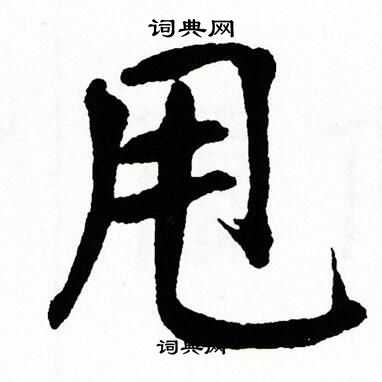 词典网
甩
词典网